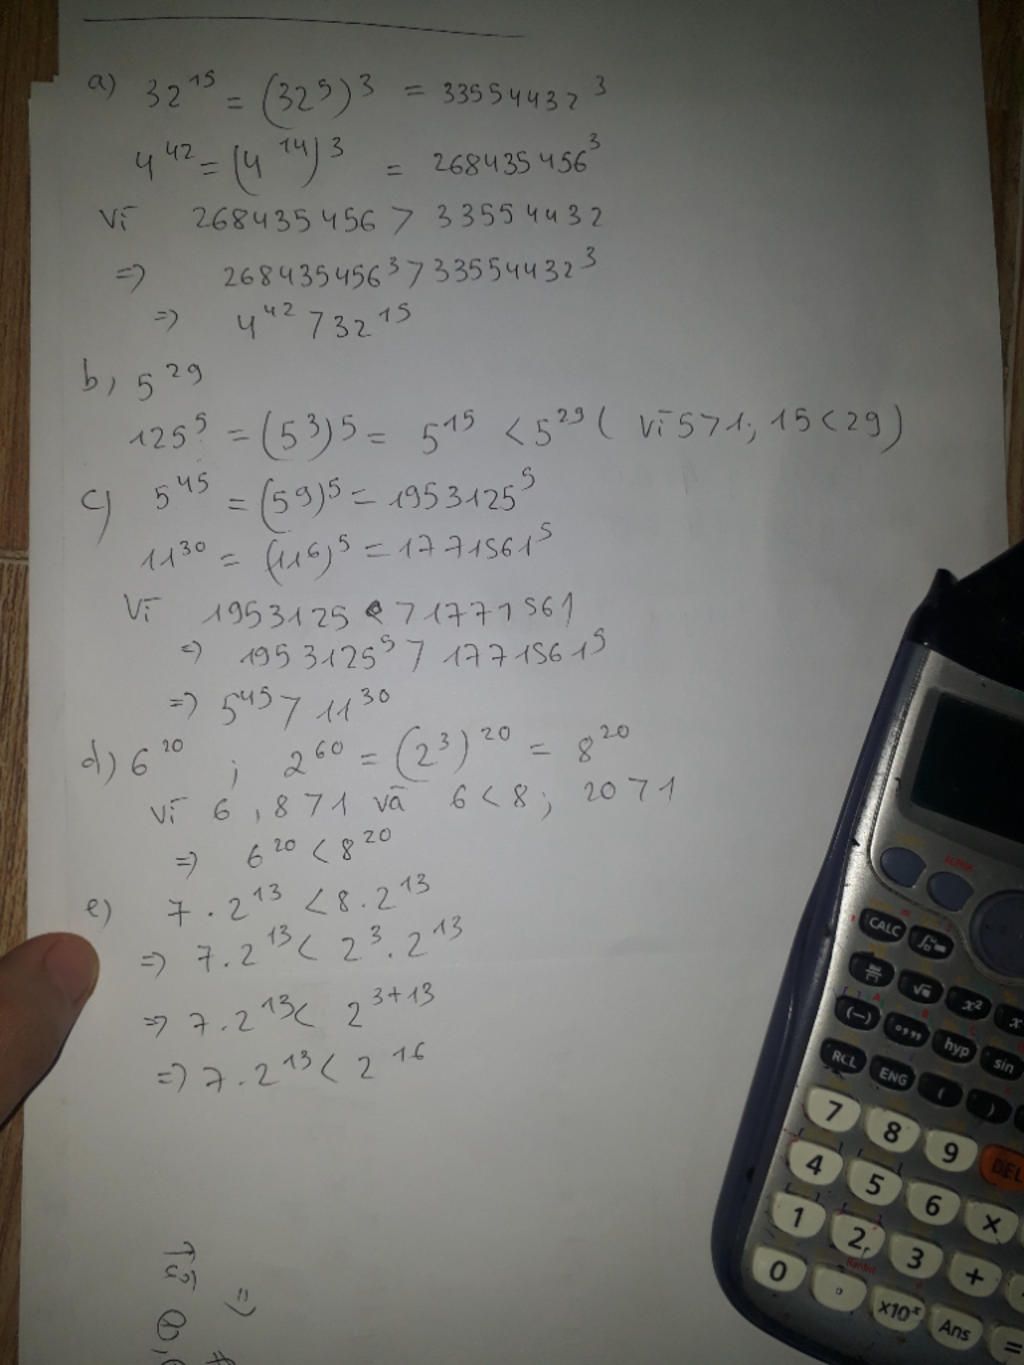 a) 32¹⁵ = (32⁵)³ = 33554432³
4⁴² = (4¹⁴)³ = 268435456³
Vì 268435456 > 33554432
=> 268435456³ > 33554432³
=> 4⁴² > 32¹⁵
b, 5²⁹
125⁵ = (5³)⁵ = 5¹⁵ < 5²⁹ ( Vì 5>1; 15<29)
c) 5⁴⁵ = (5⁹)⁵ = 1953125⁵
11³⁰ = (11⁶)⁵ = 1771561⁵
Vì 1953125 > 1771561
=> 1953125⁵ > 1771561⁵
=> 5⁴⁵ > 11³⁰
d) 6²⁰ ; 2⁶⁰ = (2³)²⁰ = 8²⁰
Vì 6, 8 > 1 và 6 < 8; 20 > 1
=> 6²⁰ < 8²⁰
e) 7 . 2¹³ < 8 . 2¹³
=> 7 . 2¹³ < 2³ . 2¹³
=> 7 . 2¹³ < 2³⁺¹³
=> 7 . 2¹³ < 2¹⁶
CALC
√▪ x²
(-) °,,, hyp sin
RCL ENG ( )
7 8 9 DEL
4 5 6 ×
1 2 3 +
0 . ×10ˣ Ans =